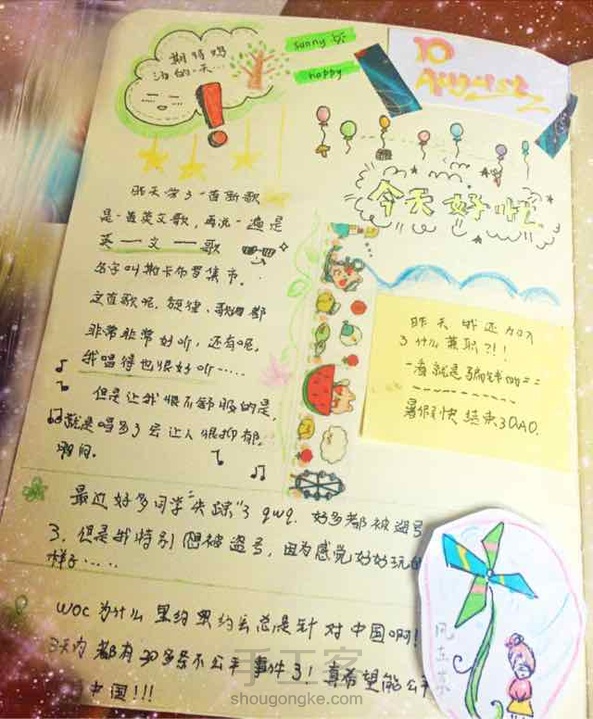 期待鸡
汤的一天
sunny
happy
10
August
今天好忙
昨天学了一首新歌
是一首英文歌，再说一遍是
英一文一歌
名字叫斯卡布罗集市。
这首歌呢，旋律、歌词都
非常非常好听，还有呢，
我唱得也很好听……
但是让我很不舒服的是，
就是唱多了会让人很抑郁，
郁闷。
昨天我还加入
了什么兼职?!!
一看就是骗钱的==
暑假快结束了QAQ.
最近好多同学"失踪"了qwq. 好多都被盗号
了，但是我特别想被盗号，因为感觉好好玩的
样子……
woc 为什么里约奥运会总是针对中国啊!
3天内都有30多条不公平事件了! 真希望能公平
中国!!!
手工客
shougongke.com